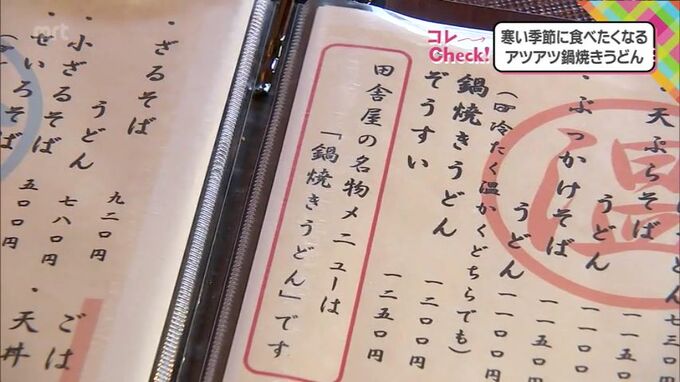 mrt
コレ
Check!
寒い季節に食べたくなる
アツアツ鍋焼きうどん
天ぷらそば
うどん 七三〇円
・ぶっかけそば 一一五〇
うどん 一一〇〇
うどん 一一〇〇円
(冷たく温かくどちらでも)
鍋焼きうどん 一二〇〇円
ぞうすい 一二五〇円
田舎屋の名物メニューは
「鍋焼きうどん」です
温
・ざるそば
うどん 九二〇円
・小ざるそば 七八〇円
・せいろそば 五〇〇円
ごは
・天丼